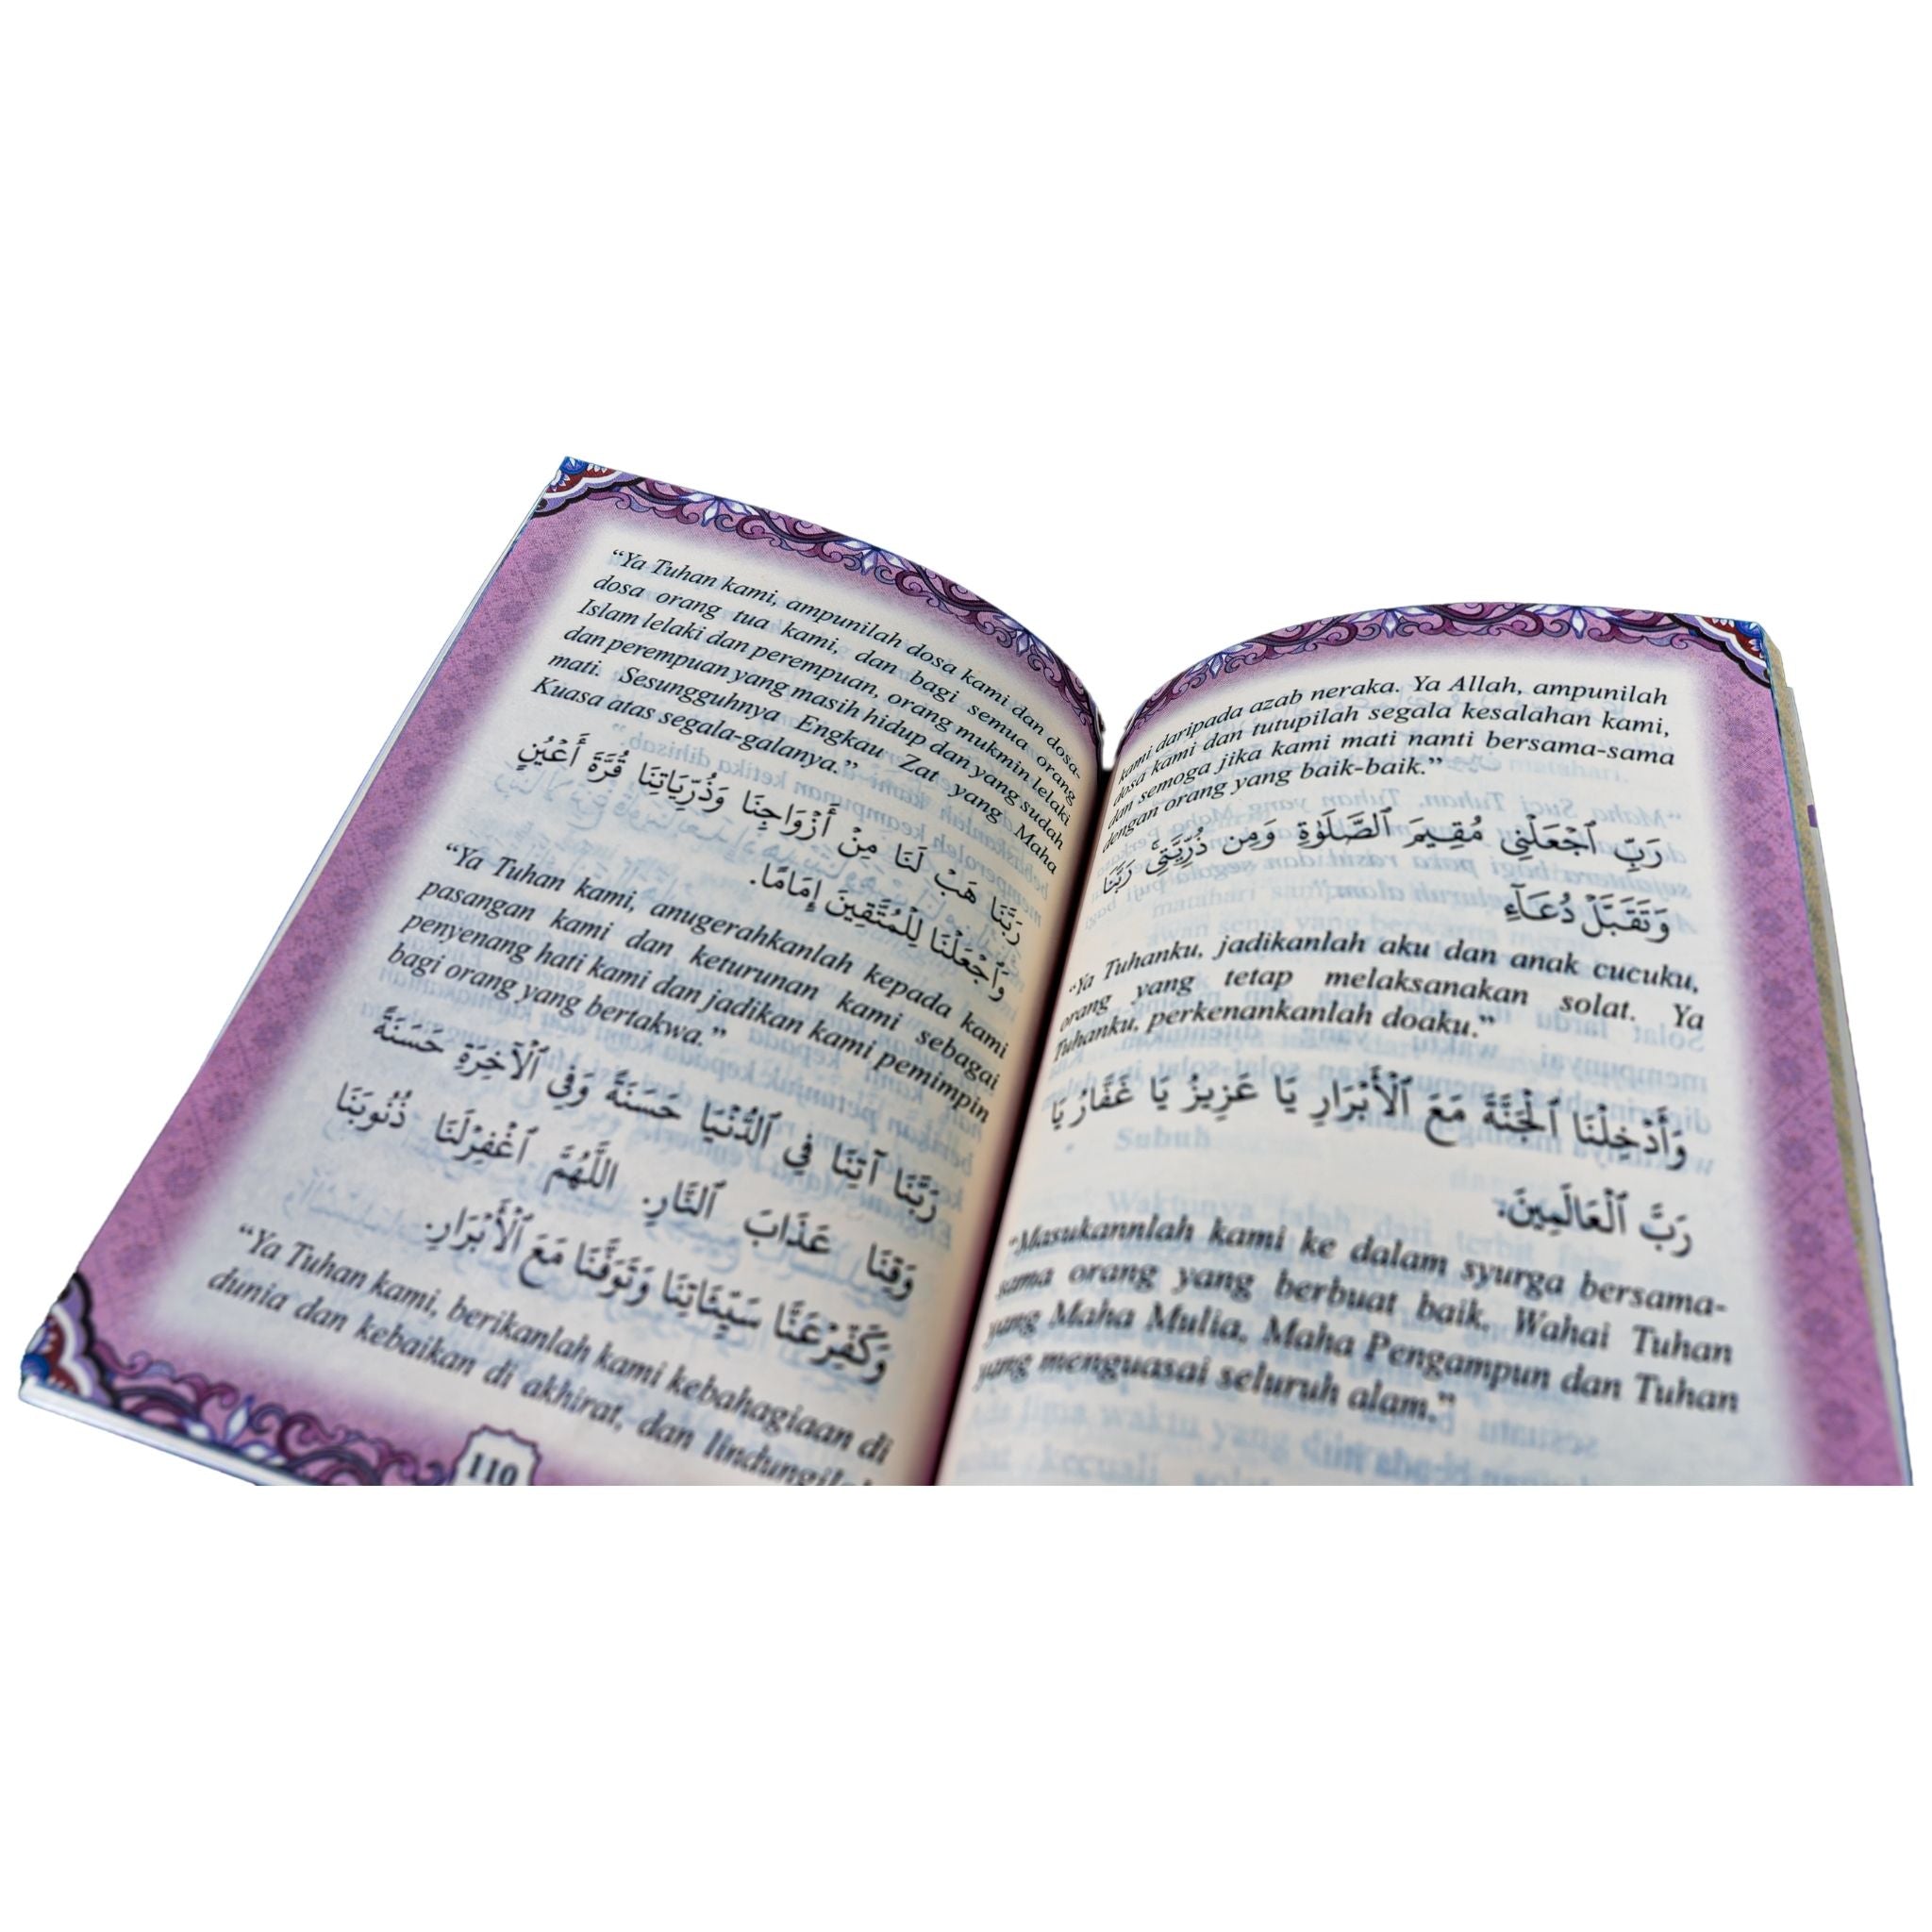 “Ya Tuhan kami, ampunilah dosa kami dan dosa-
dosa orang tua kami, dan bagi semua orang
Islam lelaki dan perempuan, orang mukmin lelaki
dan perempuan yang masih hidup dan yang sudah
mati. Sesungguhnya Engkau Zat yang Maha
Kuasa atas segala-galanya.”
رَبَّنَا هَبْ لَنَا مِنْ أَزْوَاجِنَا وَذُرِّيَاتِنَا قُرَّةَ أَعْيُنٍ
وَٱجْعَلْنَا لِلْمُتَّقِينَ إِمَامًا.
“Ya Tuhan kami, anugerahkanlah kepada kami
pasangan kami dan keturunan kami sebagai
penyenang hati kami dan jadikan kami pemimpin
bagi orang yang bertakwa.”
رَبَّنَا آتِنَا فِي ٱلدُّنْيَا حَسَنَةً وَفِي ٱلْآخِرَةِ حَسَنَةً
وَقِنَا عَذَابَ ٱلنَّارِ. اللَّهُمَّ ٱغْفِرْلَنَا ذُنُوبَنَا
وَكَفِّرْعَنَّا سَيِّئَاتِنَا وَتَوَفَّنَا مَعَ ٱلْأَبْرَارِ.
“Ya Tuhan kami, berikanlah kami kebahagiaan di
dunia dan kebaikan di akhirat, dan lindungilah
110
kami daripada azab neraka. Ya Allah, ampunilah
dosa kami dan tutupilah segala kesalahan kami,
dan semoga jika kami mati nanti bersama-sama
dengan orang yang baik-baik.”
رَبِّ ٱجْعَلْنِي مُقِيمَ ٱلصَّلَوٰةِ وَمِن ذُرِّيَّتِي ۚ رَبَّنَا
وَتَقَبَّلْ دُعَآءِ
“Ya Tuhanku, jadikanlah aku dan anak cucuku,
orang yang tetap melaksanakan solat. Ya
Tuhanku, perkenankanlah doaku.”
وَأَدْخِلْنَا ٱلْجَنَّةَ مَعَ ٱلْأَبْرَارِ يَا عَزِيزُ يَا غَفَّارُ يَا
رَبَّ ٱلْعَالَمِينَ.
“Masukannlah kami ke dalam syurga bersama-
sama orang yang berbuat baik. Wahai Tuhan
yang Maha Mulia, Maha Pengampun dan Tuhan
yang menguasai seluruh alam.”